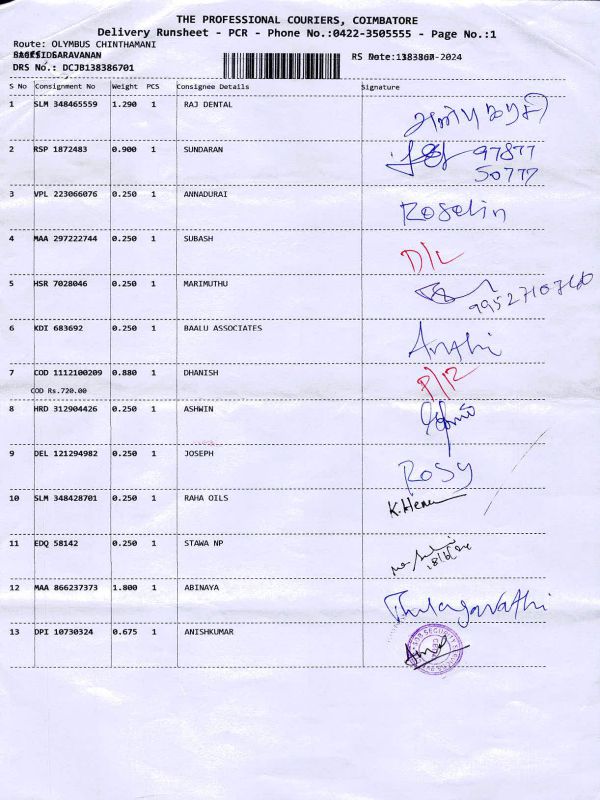 THE PROFESSIONAL COURIERS, COIMBATORE
Delivery Runsheet - PCR - Phone No.:0422-3505555 - Page No.:1
Route: OLYMBUS CHINTHAMANI
SARAVANAN
RS -2024
DRS No.: DCJB138386701
S No Consignment No Weight PCS Consignee Details Signature
1 SLM 348465559 1.290 1 RAJ DENTAL
2 RSP 1872483 0.900 1 SUNDARAN 97877
50777
3 VPL 223066076 0.250 1 ANNADURAI Roselin
4 MAA 297222744 0.250 1 SUBASH D/L
5 HSR 7028046 0.250 1 MARIMUTHU 9952710760
6 KDI 683692 0.250 1 BAALU ASSOCIATES
7 COD 1112100209 0.880 1 DHANISH
COD Rs.720.00
8 HRD 312904426 0.250 1 ASHWIN
9 DEL 121294982 0.250 1 JOSEPH ROSY
10 SLM 348428701 0.250 1 RAHA OILS K.Hema
11 EDQ 58142 0.250 1 STAWA NP
12 MAA 866237373 1.800 1 ABINAYA Thilagavathi
13 DPI 10730324 0.675 1 ANISHKUMAR
SECURITY